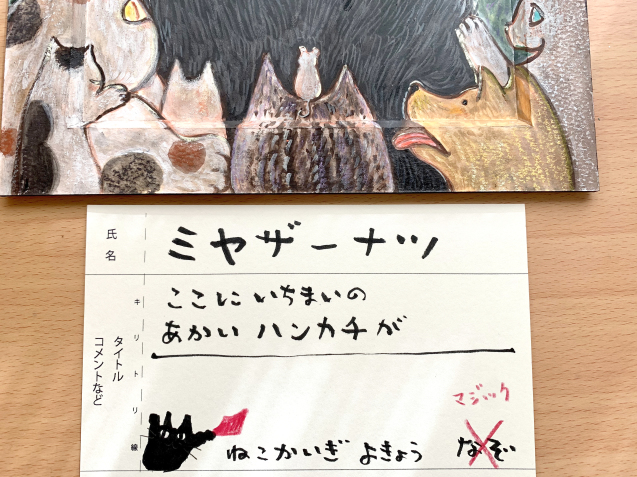 氏名
ミヤザーナツ
キリトリ線
タイトル
コメントなど
ここに いちまいの
あかい ハンカチが
マジック
ねこかいぎ よきょう なぞ